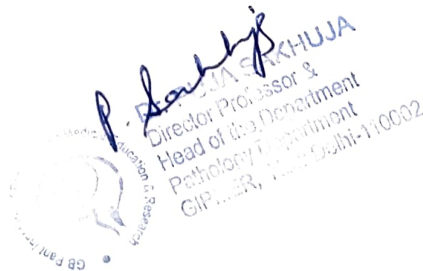 P. Sakhuja
SAKHUJA
Director Professor &
Head of the Department
Pathology Department
Delhi-110002
GB Pant
Education & Research